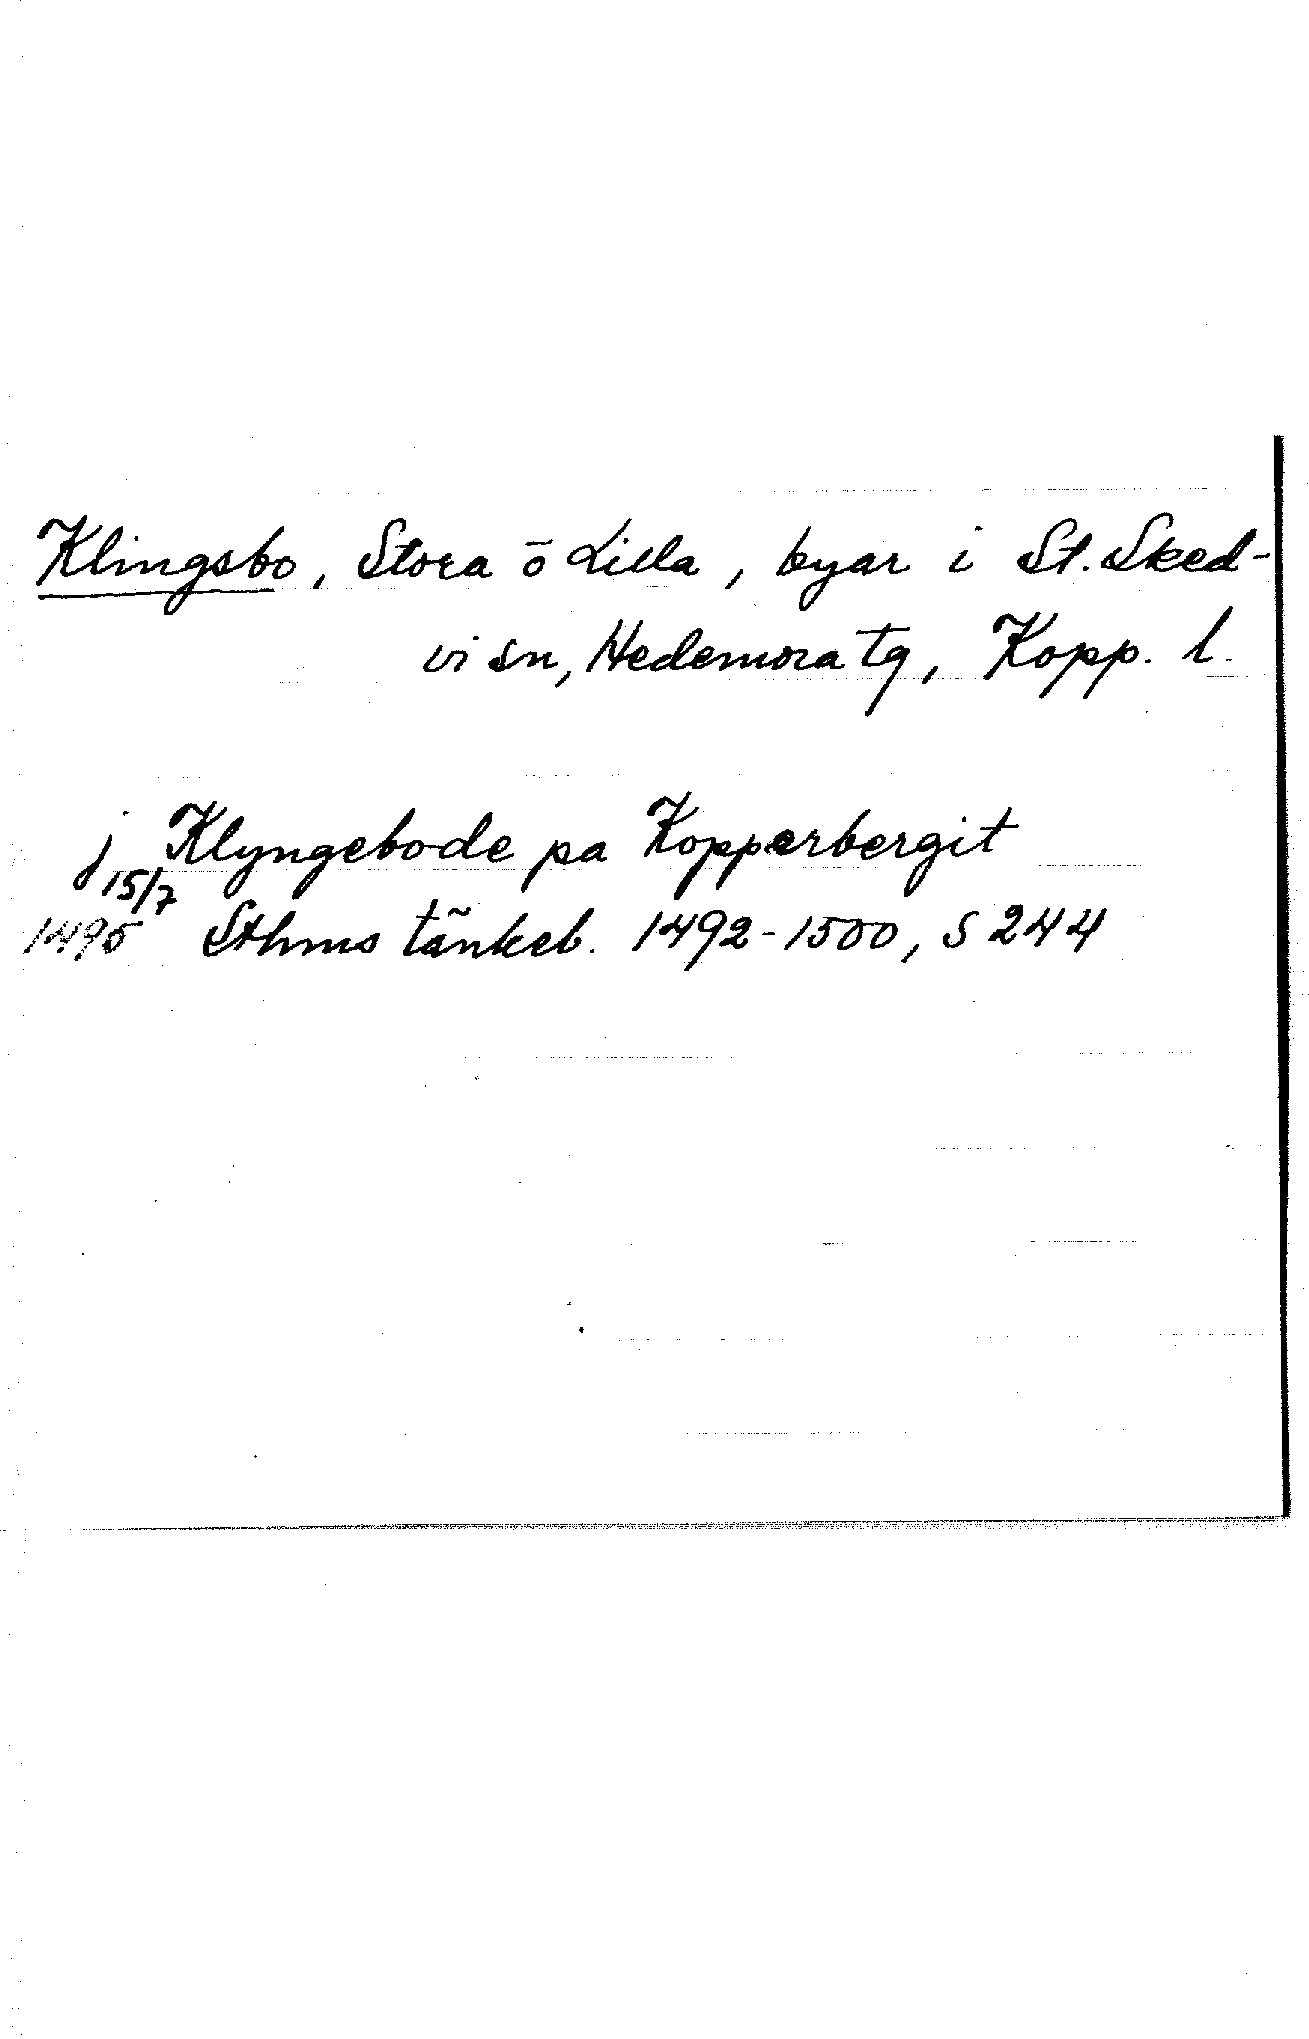 Klingsbo, Stora ō Lilla, byar i St. Sked-
vi sn, Hedemora tg, Kopp. l.
j Klyngebode pa Kopperbergit
15/7
1495 Sthms tänkeb. 1492-1500, S 244